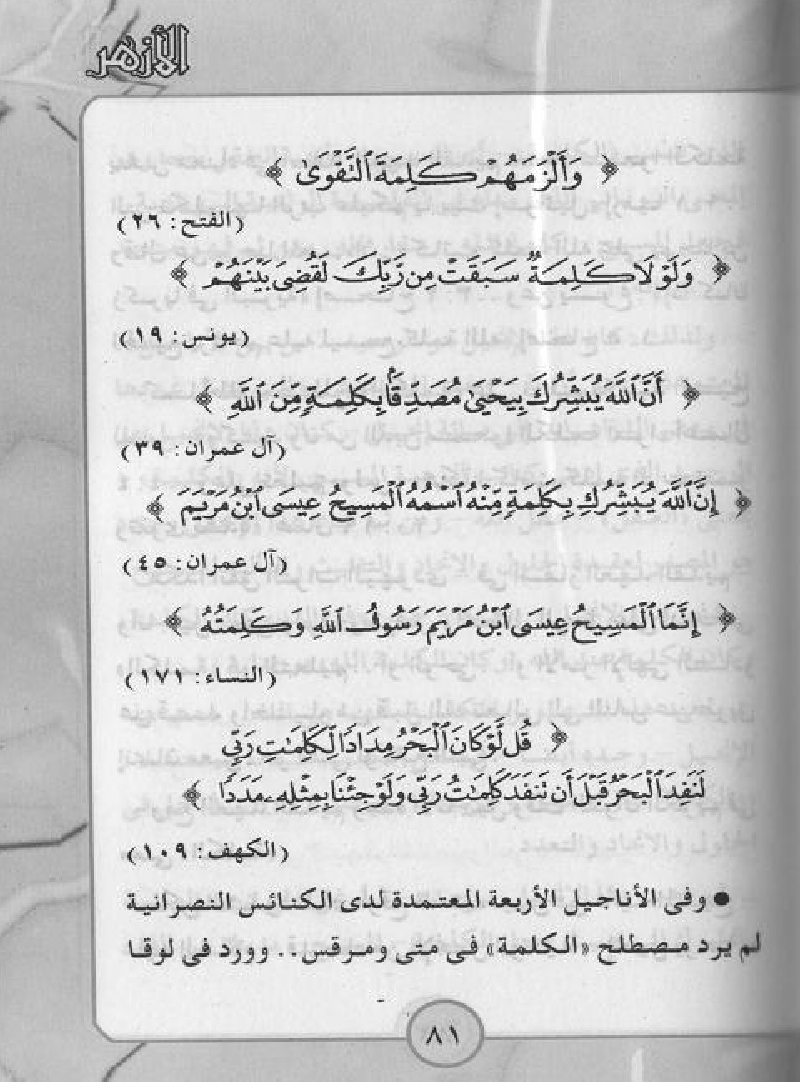 الأزهر
﴿ وَأَلْزَمَهُمْ كَلِمَةَ ٱلتَّقْوَىٰ ﴾
(الفتح: ٢٦)
﴿ وَلَوْلَا كَلِمَةٌ سَبَقَتْ مِن رَّبِّكَ لَقُضِىَ بَيْنَهُمْ ﴾
(يونس: ١٩)
﴿ أَنَّ ٱللَّهَ يُبَشِّرُكَ بِيَحْيَىٰ مُصَدِّقًۢا بِكَلِمَةٍ مِّنَ ٱللَّهِ ﴾
(آل عمران: ٣٩)
﴿ إِنَّ ٱللَّهَ يُبَشِّرُكِ بِكَلِمَةٍ مِّنْهُ ٱسْمُهُ ٱلْمَسِيحُ عِيسَى ٱبْنُ مَرْيَمَ ﴾
(آل عمران: ٤٥)
﴿ إِنَّمَا ٱلْمَسِيحُ عِيسَى ٱبْنُ مَرْيَمَ رَسُولُ ٱللَّهِ وَكَلِمَتُهُ ﴾
(النساء: ١٧١)
﴿ قُل لَّوْ كَانَ ٱلْبَحْرُ مِدَادًا لِّكَلِمَٰتِ رَبِّى
لَنَفِدَ ٱلْبَحْرُ قَبْلَ أَن تَنفَدَ كَلِمَٰتُ رَبِّى وَلَوْ جِئْنَا بِمِثْلِهِۦ مَدَدًا ﴾
(الكهف: ١٠٩)
● وفى الأناجيل الأربعة المعتمدة لدى الكنائس النصرانية
لم يرد مصطلح «الكلمة» فى متى ومرقس.. وورد فى لوقا
٨١